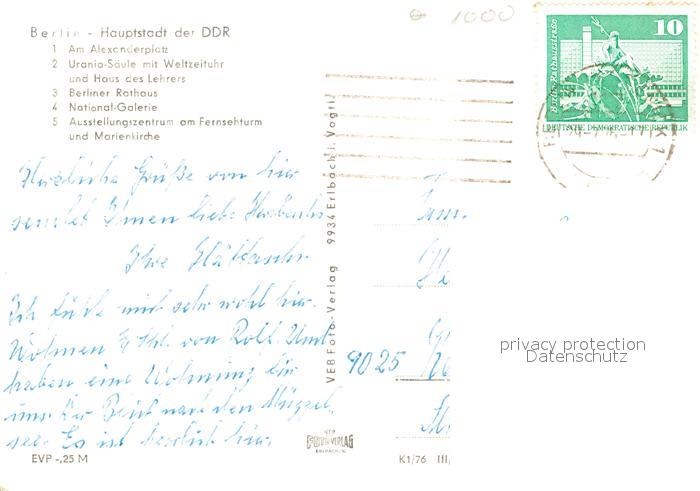 Berlin - Hauptstadt der DDR
1 Am Alexanderplatz
2 Urania-Säule mit Weltzeituhr
und Haus des Lehrers
3 Berliner Rathaus
4 National-Galerie
5 Ausstellungszentrum am Fernsehturm
und Marienkirche
1000
Berlin-Rathausstraße
10
DEUTSCHE DEMOKRATISCHE REPUBLIK
Herzliche Grüße von hier
sendet Ihnen liebe
Ihre
Ich fühle mich sehr wohl hier.
Wohnen von Rolf. Und
haben eine Wohnung für
uns. Der Blick nach den Müggel
see. Es ist herrlich hier.
EVP -,25 M
VEB Foto-Verlag 9934 Erlbach i. Vogtl.
Fam.
9025
K1/76 III
privacy protection
Datenschutz